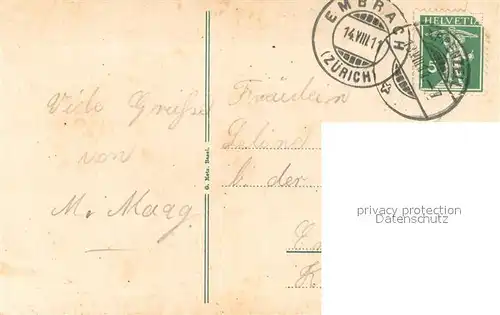 EMBRACH
14.VIII.11
(ZÜRICH)
HELVETIA
5
Viele Grüsse
von
M. Maag
G. Metz, Basel.
Fräulein
b. der
privacy protection
Datenschutz